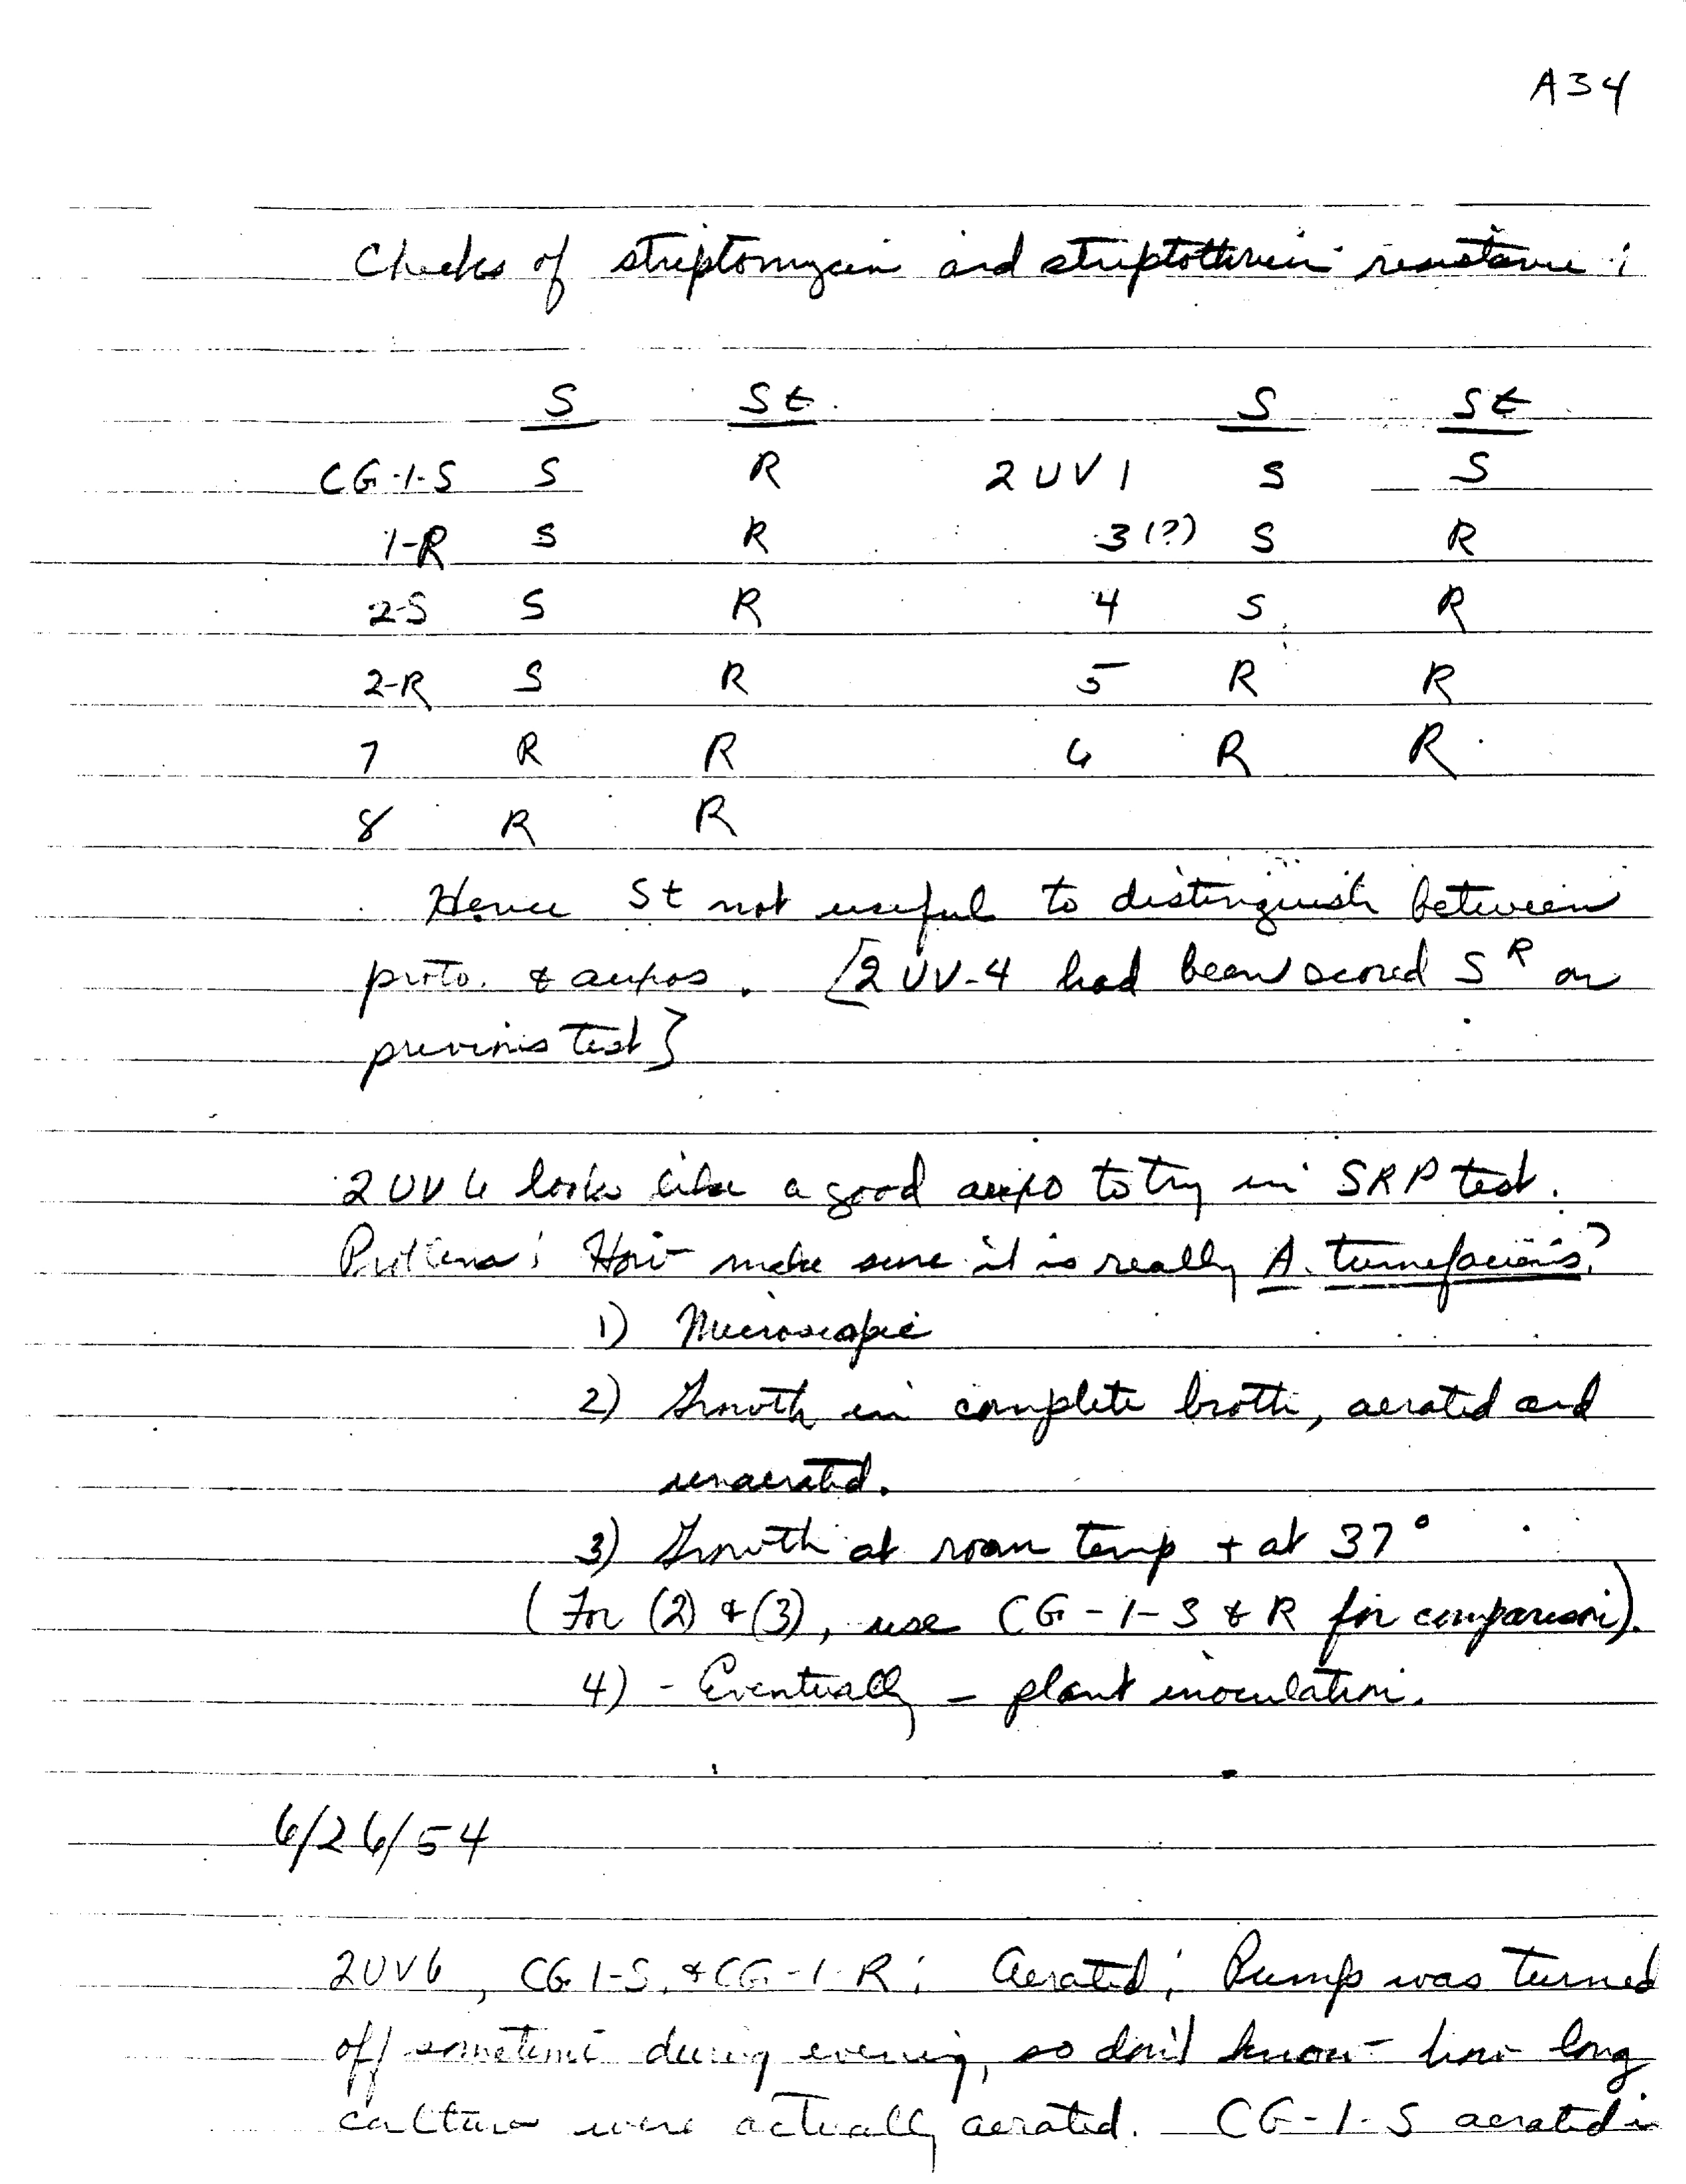 A34
Checks of streptomycin and streptothricin resistance:
S St S St
CG-1-S S R 2UV1 S S
1-R S R 3(?) S R
2-S S R 4 S R
2-R S R 5 R R
7 R R 6 R R
8 R R
Hence St not useful to distinguish between
proto. & auxos. [2UV-4 had been scored S^R on
previous test]
2UV6 looks like a good auxo to try in SRP test.
Problem: How make sure it is really A. tumefaciens?
1) Microscopic
2) Growth in complete broth, aerated and
unaerated.
3) Growth at room temp + at 37°
(For (2) & (3), use CG-1-S & R for comparison).
4) - Eventually - plant inoculation.
6/26/54
2UV6, CG1-S, & CG-1-R: Aerated; Pump was turned
off sometime during evening, so don't know how long
cultures were actually aerated. CG-1-S aerated in